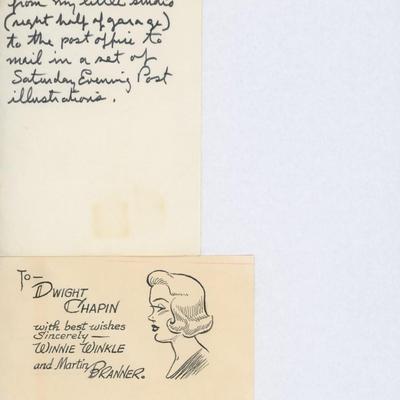 from my little studio
(right half of garage)
to the post office to
mail in a set of
Saturday Evening Post
illustrations.
To—
Dwight
Chapin
with best wishes
Sincerely—
Winnie Winkle
and Martin
Branner.